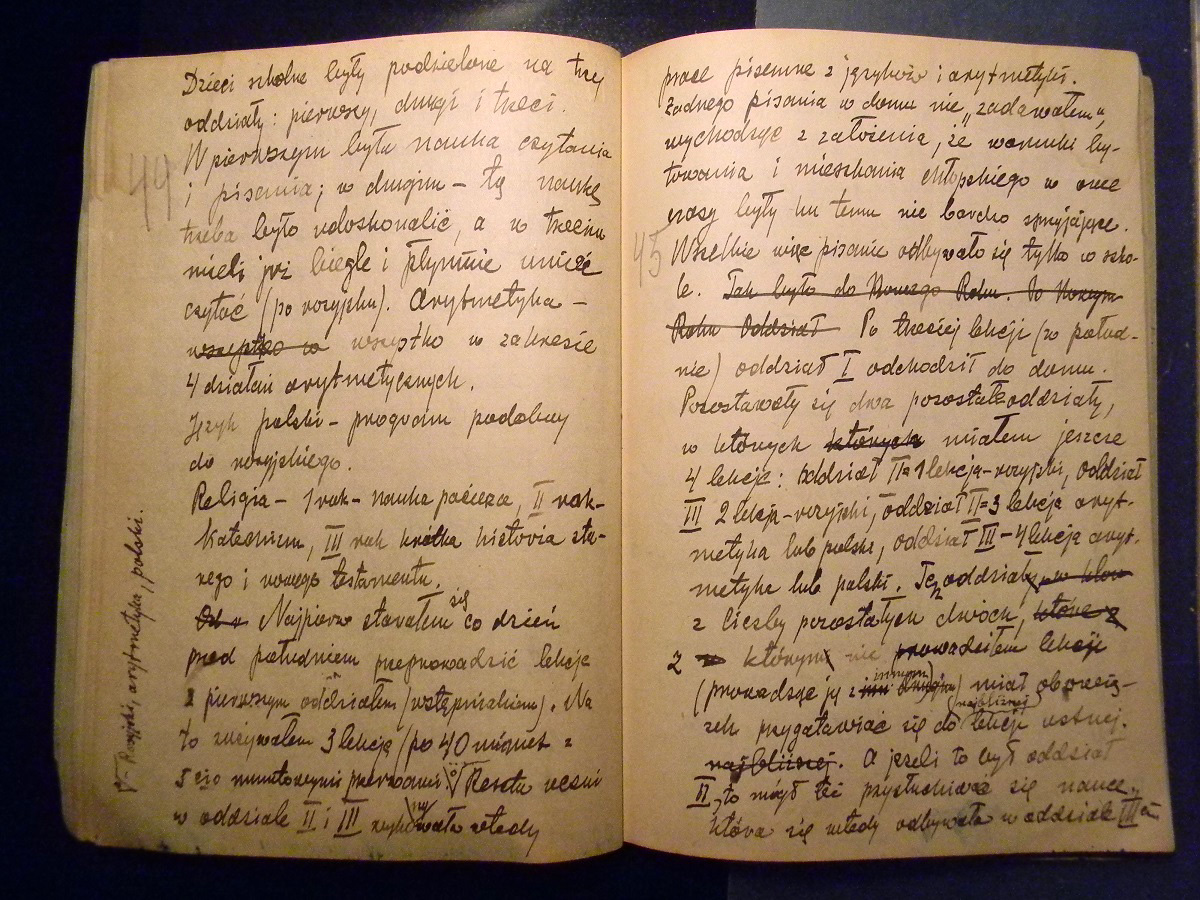 Dzieci szkolne były podzielone na trzy
oddziały: pierwszy, drugi i trzeci.
W pierwszym była nauka czytania
i pisania; w drugim – tę naukę
trzeba było udoskonalić, a w trzecim
mieli już biegle i płynnie umieć
czytać (po rosyjsku). Arytmetyka –
wszystko w wszystko w zakresie
4 działań arytmetycznych.
Język polski – program podobny
do rosyjskiego.
Religia – I rok – nauka pacierza, II rok –
katechizm, III rok krótka historia sta-
rego i nowego testamentu.
Najpierw starałem się co dzień
przed południem przeprowadzić lekcje
z pierwszym oddziałem (wstępniakiem). Na
to zużywałem 3 lekcje (po 40 minut z
5cio minutowymi przerwami. Reszta uczni
w oddziale II i III wykonywała wtedy
V – Rosyjski, arytmetyka, polski.
44
prace pisemne z języków i arytmetyki.
Żadnego pisania w domu nie „zadawałem”,
wychodząc z założenia, że warunki by-
towania i mieszkania chłopskiego w owe
czasy były ku temu nie bardzo sprzyjające.
45
Wszelkie więc pisanie odbywało się tylko w szko-
le. Tak było do Nowego Roku. Po Nowym
Roku Oddział Po trzeciej lekcji (w połud-
nie) oddział I odchodził do domu.
Pozostawały się dwa pozostałe oddziały,
w których których miałem jeszcze
4 lekcje: oddział II = 1 lekcja – rosyjski, oddział
III 2 lekcja – rosyjski, oddział II = 3 lekcja aryt-
metyka lub polski, oddział III – 4 lekcja aryt-
metyke lub polski. Ten oddział,
z liczby pozostałych dwóch, które z
z którym nie prowadziłem lekcji
(prowadząc ją z innym) miał obowią-
zek przygotawiać się do najbliższej lekcji ustnej.
najbliższej. A jeżeli to był oddział
II, to mógł też przysłuchiwać się nauce,
która się wtedy odbywała w oddziale III-im